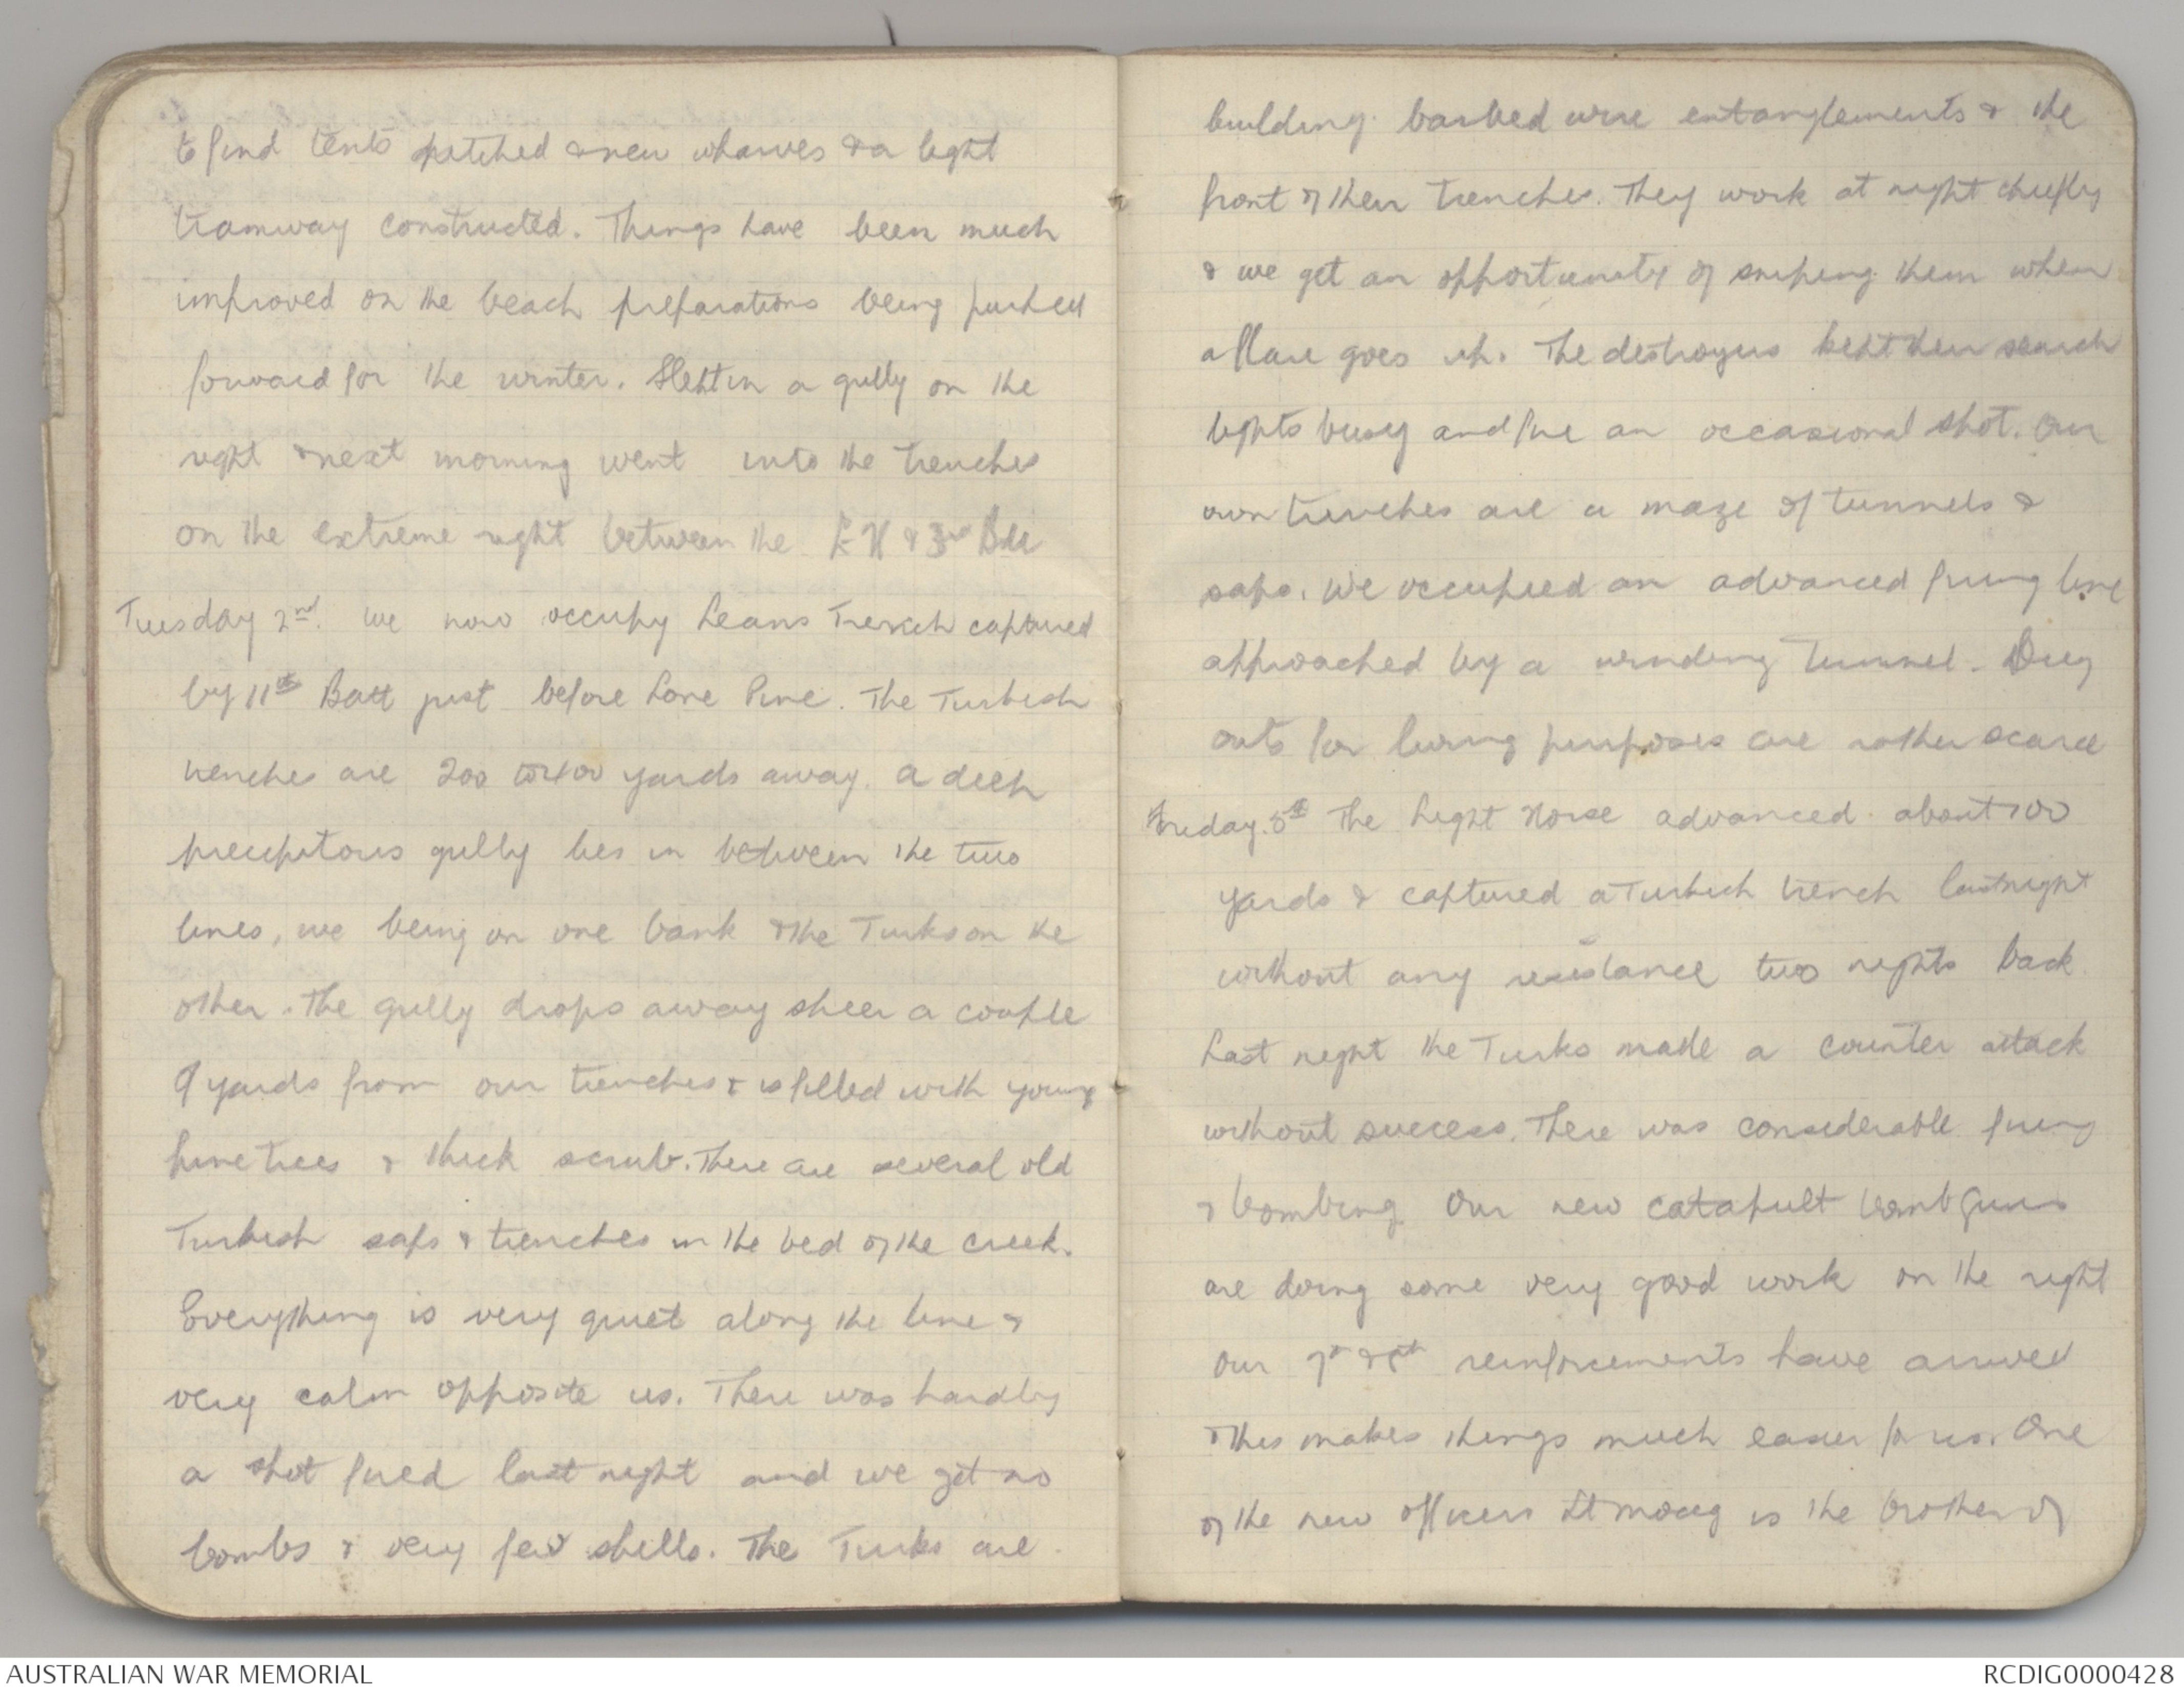 to find tents pitched & new wharves & a light
tramway constructed. Things have been much
improved on the beach preparations being pushed
forward for the winter. Slept in a gully on the
right & next morning went into the trenches
on the extreme right between the L H & 3rd Bde
Tuesday 2nd. we now occupy Leans Trench captured
by 11th Batt just before Lone Pine. The Turkish
trenches are 200 to 400 yards away. A deep
precipitous gully lies in between the two
lines, we being on one bank & the Turks on the
other. The gully drops away sheer a couple
of yards from our trenches & is filled with young
pine trees & thick scrub. There are several old
Turkish saps & trenches in the bed of the creek.
Everything is very quiet along the line &
very calm opposite us. There was hardly
a shot fired last night and we get no
bombs & very few shells. The Turks are
building barbed wire entanglements & the
front of their trenches. They work at night chiefly
& we get an opportunity of sniping them when
a flare goes up. The destroyers kept their search
lights busy and fire an occasional shot. Our
own trenches are a maze of tunnels &
saps. We occupied an advanced firing line
approached by a winding tunnel. Dug
outs for living purposes are rather scarce
Friday. 5th The Light Horse advanced about 100
yards & captured a Turkish trench last night
without any resistance two nights back
Last night the Turks made a counter attack
without success. There was considerable firing
& bombing Our new catapult bomb guns
are doing some very good work on the right
Our 7th & 8th reinforcements have arrived
& this makes things much easier for us. One
of the new officers Lt is the brother of
AUSTRALIAN WAR MEMORIAL
RCDIG0000428